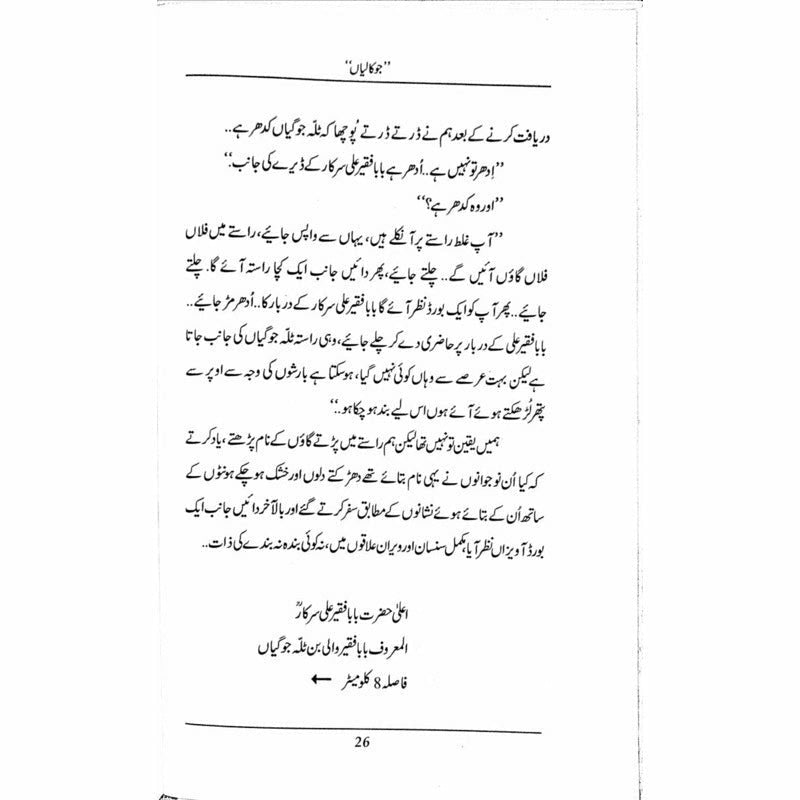 ’’جوکالیاں‘‘
دریافت کرنے کے بعد ہم نے ڈرتے ڈرتے پُوچھا کہ ٹلّہ جوگیاں کدھر ہے..
’’اِدھر تو نہیں ہے..اُدھر ہے بابا فقیر علی سرکار کے ڈیرے کی جانب.‘‘
’’اور وہ کدھر ہے؟‘‘
’’آپ غلط راستے پر آ نکلے ہیں، یہاں سے واپس جائیے، راستے میں فلاں
فلاں گاؤں آئیں گے.. چلتے جائیے، پھر دائیں جانب ایک کچا راستہ آئے گا. چلتے
جائیے..پھر آپ کو ایک بورڈ نظر آئے گا بابا فقیر علی سرکار کے دربار کا..اُدھر مڑ جائیے..
بابا فقیر علی کے دربار پر حاضری دے کر چلے جائیے، وہی راستہ ٹلّہ جوگیاں کی جانب جاتا
ہے لیکن بہت عرصے سے وہاں کوئی نہیں گیا، ہو سکتا ہے بارشوں کی وجہ سے اوپر سے
پتھر لُڑھکتے ہوئے آئے ہوں اس لیے بند ہو چکا ہو.‘‘
ہمیں یقین تو نہیں تھا لیکن ہم راستے میں پڑتے گاؤں کے نام پڑھتے، یاد کرتے
کہ کیا اُن نوجوانوں نے یہی نام بتائے تھے دھڑکتے دلوں اور خشک ہو چکے ہونٹوں کے
ساتھ اُن کے بتائے ہوئے نشانوں کے مطابق سفر کرتے گئے اور بالآخر دائیں جانب ایک
بورڈ آویزاں نظر آیا، مکمل سنسان اور ویران علاقوں میں، نہ کوئی بندہ نہ بندے کی ذات..
اعلیٰ حضرت بابا فقیر علی سرکارؒ
المعروف بابا فقیر والی بن ٹلّہ جوگیاں
فاصلہ 8 کلومیٹر ←
26